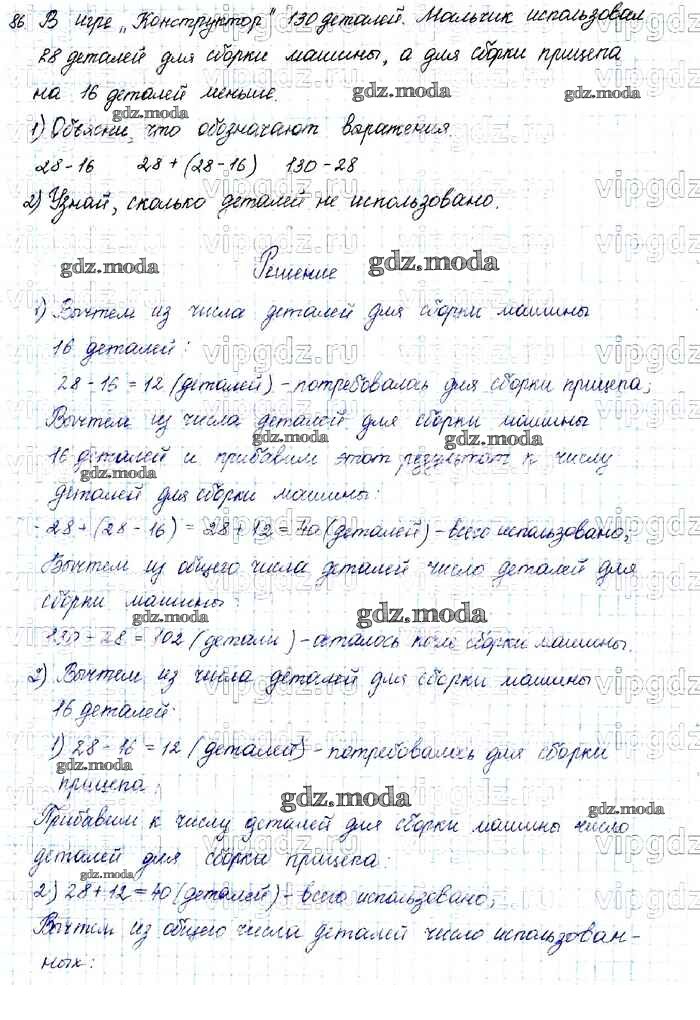 86. В игре „Конструктор" 130 деталей. Мальчик использовал
28 деталей для сборки машины, а для сборки прицепа
на 16 деталей меньше.
1) Объясни, что обозначают выражения.
28-16 28+(28-16) 130-28
2) Узнай, сколько деталей не использовано.
Решение
1) Вычтем из числа деталей для сборки машины
16 деталей:
28-16=12 (деталей) - потребовалось для сборки прицепа;
Вычтем из числа деталей для сборки машины
16 деталей и прибавим этот результат к числу
деталей для сборки машины:
28+(28-16)=28+12=40 (деталей) - всего использовано;
Вычтем из общего числа деталей число деталей для
сборки машины:
130-28=102 (детали) - осталось после сборки машины.
2) Вычтем из числа деталей для сборки машины
16 деталей:
1) 28-16=12 (деталей) - потребовалось для сборки
прицепа;
Прибавим к числу деталей для сборки машины число
деталей для сборки прицепа:
2) 28+12=40 (деталей) - всего использовано;
Вычтем из общего числа деталей число использован-
ных:
gdz.moda
vipgdz.ru